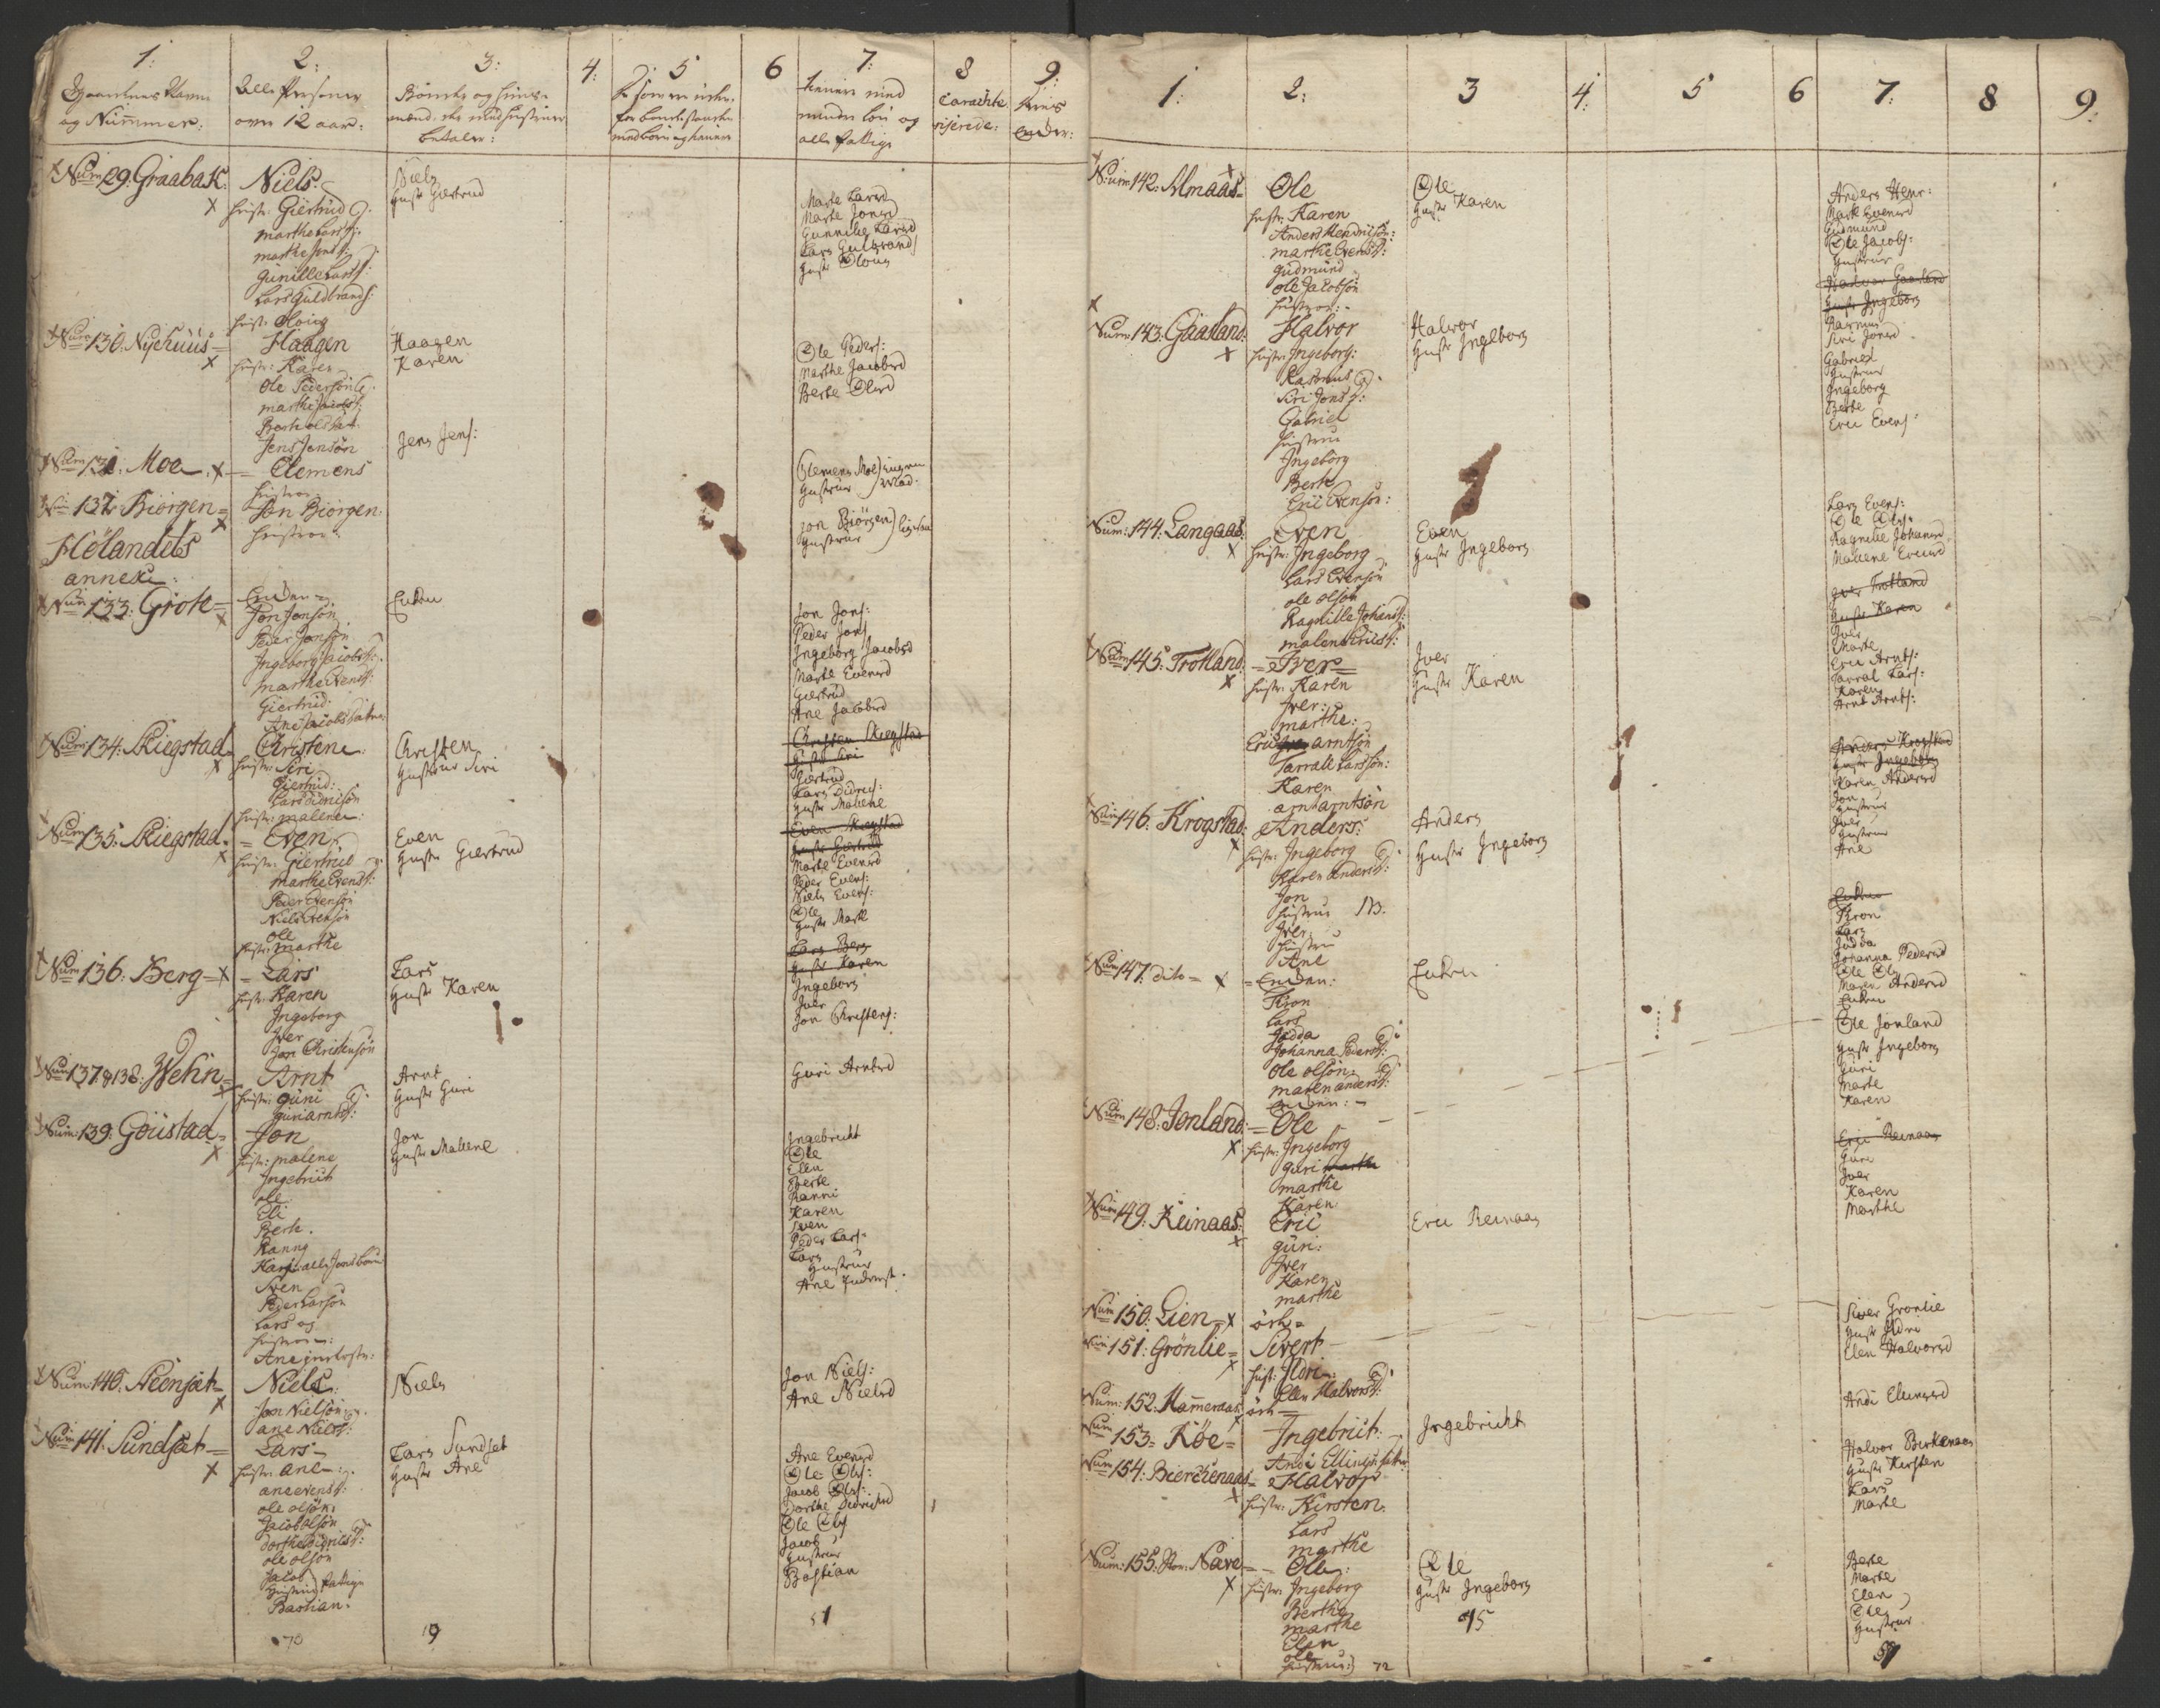 1:
2:
3:
4:
5
6
7:
8
9:
Gaardenes Navne
og Nummer:
Alle Personer
over 12 aar:
betaler:
tienere med
alle fattige
Caracte
riserede:
Num 29. Graabak:
Niels
hustr: Giertrud
marthe Larsd:
marthe Jonsd:
Gunille Larsd:
Lars Guldbrands:
hustr: Oloug
Niels
hust: Giertrud
Marte Larsd
Marte Jonsd
Gunnille Larsd
Lars Gulbrands
hust: Oloug
Num 130. Nyehuus
Haagen
hustr: Karen
Ole Pedersøn
marthe Jacobsd:
Berte olsdat:
Jens Jensøn
Haagen
Karen
Jens Jens:
Ole Peders:
Marthe Jacobsd
Berte Olsd
Num 131. Moe
Clemens
hustroe
Clemens Moe
hustrue
Num 132 Biørgen
Jon Biørgen
hustroe
Jon Biørgen
hustrue
Hølandets
annex:
Num 133: Grote
Enken
Jon Jonsøn
Peder Jonsøn
Ingeborg Jacobsd:
marthe Evensd:
Giertrud:
Ane Jacobsdatter
Enken
Jon Jons:
Peder Jons
Ingeborg Jacobsd
Marte Evensd
Giertrud
Ane Jacobsd
Num 134: Skiegstad
Christen
hustr: Siri
Giertrud:
Lars Didriksøn
hustr: malene:
Christen
hustrue Siri
Christen Skiegstad
hust: Siri
Giertrud
Lars Didriks:
hustr Malene
Num 135: Skiegstad
Even
hustr: Giertrud
marthe Evensd:
Peder Evensøn
Niels Evensøn
Ole
hustr: marthe
Even
hustr Giertrud
Even Skiegstad
hustr Giertrud
Marte Evensd
Peder Evens:
Niels Evens:
Ole
hustr Marte
Num 136: Berg
Lars
hustr: Karen
Ingeborg
Iver
Jon Christensøn
Lars
hustr Karen
Lars Berg
hustr Karen
Ingeborg
Iver
Jon Christens:
Num 137 & 138: Wehn
Arnt
hustr: guri
guri arntsd:
Arnt
hustr Guri
Guri Arntsd
Num: 139: Goustad
Jon
hustr: malene
Ingebrict
ole
Eli
Berte.
Ranny
Karen alle Jons børn
Sven
Peder Larsøn
Lars og
hustroe:
Ane
Jon
hustr Malene
Ingebricht
Ole
Elen
Berte
Ranni
Karen
Sven
Peder Lars:
Lars
hustrue
Ane
Num: 140: Steensæt
Niels
Jon Nielsøn
ane Nielsd:
Niels
Jon Niels:
Ane Nielsd
Num 141. Sundset
Lars
hustr: ane
ane evensd:
ole olsøn
Jacob olsøn
dorthe Didriksd:
ole olsøn
Jacob
hustrue
Bastian.
Lars Sundset
hustr Ane
Ane Evensd
Ole Ols:
Jacob Ols:
Dorthe Didrichsd
Ole Ols
Jacob
hustrue
Bastian
70
19
51
1:
2:
3
4:
5
6
7:
8
9:
Num 142: Almaas
Ole
hustr: Karen
Anders Hendricsøn:
marthe Evensd:
gudmund
ole Jacobsøn
hustroe:
Ole
hustr Karen
Anders Henr:
Marte Evensd
Gudmund
Ole Jacobs:
hustrue
Num: 143: Gaasland:
Halvor
hustr: Ingeborg:
Rasmus
Siri Jonsd:
Gabriel
hustrue
Ingeborg
Berte
Eric Evensøn:
Halvor
hustr Ingeborg
Halvor Gaasland
hustr Ingeborg
Rasmus
Siri Jonsd
Gabriel
hustrue
Ingeborg
Berte
Eric Evens:
Num: 144: Langaas:
Even
hustr: Ingeborg
Lars Evensøn
ole olsøn
Ragnille Johansd:
malene Ericsd:
Even
hustr Ingeborg
Lars Evens:
Ole Ols:
Ragnille Johansd
Malene Ericsd
Num 145: Trotland:
Iver
hustr: Karen
Iver:
marthe:
Eric arntsøn
Tarrald Larssøn:
Karen
arnt arntsøn
Iver
hustr Karen
Iver Trotland
hustr Karen
Iver
Marte
Eric Arnts:
Tarral Lars:
Karen
Arnt Arnts:
Num 146: Krogstad:
Anders:
hustr: Ingeborg
Karen andersd:
Jon
hustrue
Iver
hustrue
Ane
Anders
hustr Ingeborg
Anders Krogstad
hustr Ingeborg
Karen Andersd
Jon
hustrue
Iver
hustrue
Ane
Num 147: dito
Enken:
Tron
Lars
Jødda
Johanna Pedersd:
ole olsøn
maren andersd:
enken:
Enken
Enken
Tron
Lars
Jødda
Johanna Pedersd
Ole Ols
Maren Andersd
Enken
Num 148: Jonland:
Ole
hustr: Ingeborg
guri marthe
marthe
Karen
Ole Jonland
hustr Ingeborg
Guri
Marte
Karen
Num 149: Reinaas:
Eric
guri:
Iver
Karen
marthe
Eric Reinaas
Eric Reinaas
Guri
Iver
Karen
Marthe
Num 150: Lien
öde
Num 151: Grönlie
Sivert
hust: Ildri
Ellen Halvorsd:
Siver Grønlie
hustr Ildri
Elen Halvorsd
Num: 152: Hammeraas
öde
Num 153: Röe
Ingebrict:
Ingebricht
Num 154: Bierckenaas
Halvor
hustr: Kirsten:
Lars
marthe
Halvor Birkenaas
hustr Kirsten
Lars
Marte
Num: 155: Stor: Næve
Ole:
hustr: Ingeborg
Berthe
marthe
Elen
ole
hustrue
Ole
hustr Ingeborg
Berte
Marte
Elen
Ole
hustrue
72
15
51